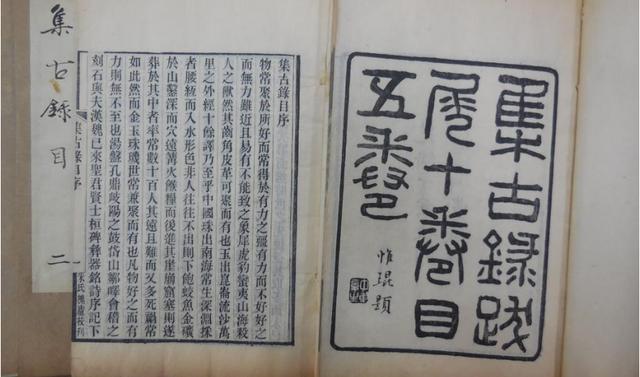 集古錄跋
尾十卷目
五卷
惟琨題
集古錄目序
物常聚於所好而常得於有力之彊有力而不好好之
而無力雖近且易有不能致之象犀虎豹蠻夷山海殺
人之獸然其齒角皮革可聚而有也玉出崑崙流沙萬
里之外經十餘譯乃至乎中國珠出南海常生深淵採
者腰絙而入水形色非人往往不出則下飽蛟魚金礦
於山鑿深而穴遠篝火餱糧而後進其崖崩窟塞則遂
葬於其中者率常數十百人其遠且難而又多死禍常
如此然而金玉珠璣世常兼聚而有也凡物好之而有
力則無不至也湯盤孔鼎岐陽之鼓岱山鄒嶧會稽之
刻石與夫漢魏已來聖君賢士桓碑彝器銘詩序記下
集古錄目序
朱氏槐廬校刊
集古錄目 二